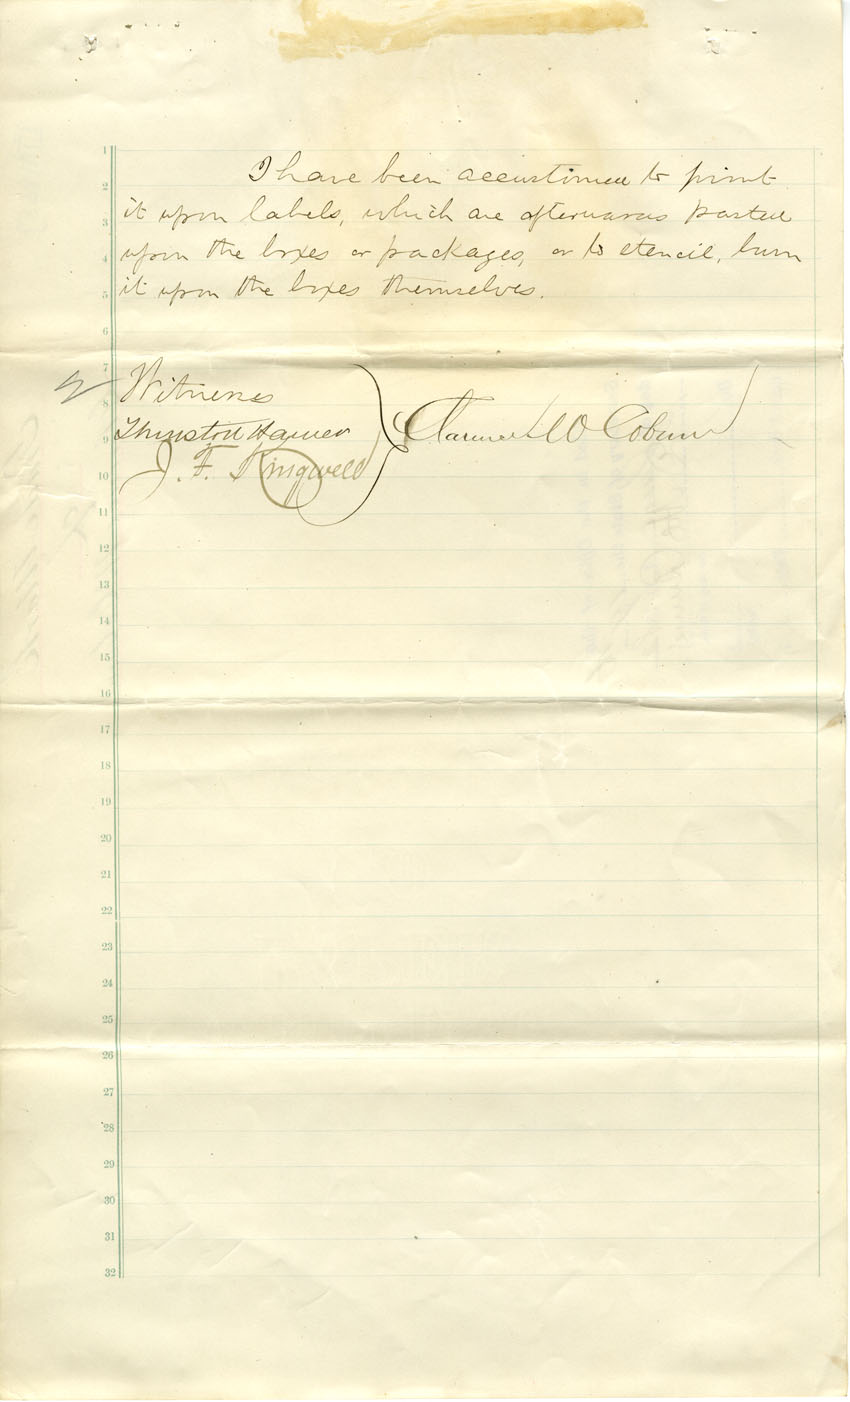 1
I have been accustomed to print
2
it upon labels, which are afterwards pasted
3
upon the boxes or packages, or to stencil, burn
4
it upon the boxes themselves.
5
6
7
Witness
8
Clarence W Coburn
9
J. F. Kingwell
10
11
12
13
14
15
16
17
18
19
20
21
22
23
24
25
26
27
28
29
30
31
32